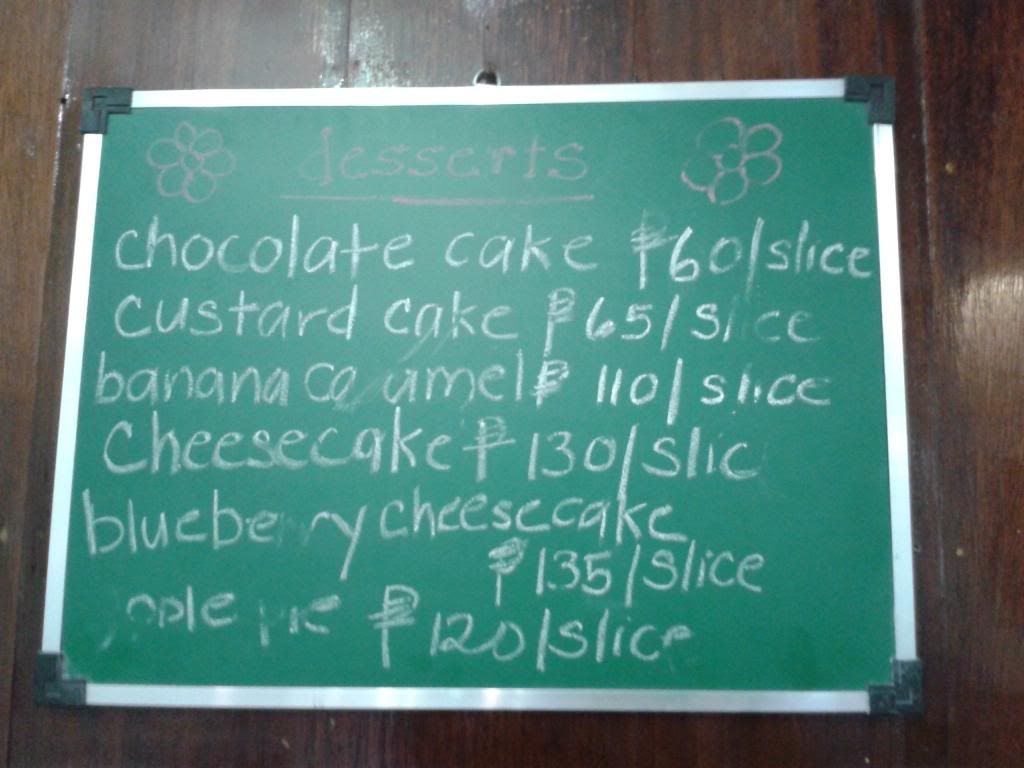 desserts
chocolate cake ₱60/slice
custard cake ₱65/slice
banana caramel ₱ 110/slice
Cheesecake ₱ 130/slic
blueberry cheesecake
₱135/slice
apple pie ₱ 120/slice